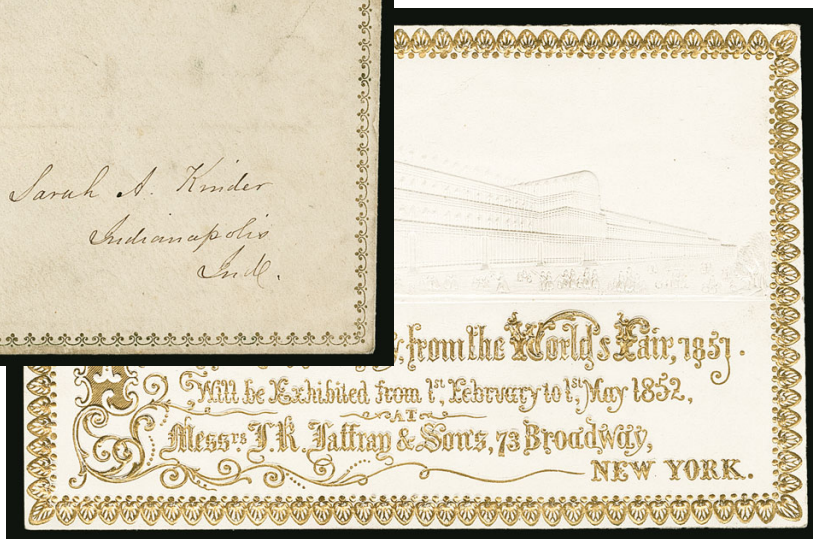 Sarah A. Kinder
Indianapolis
Ind.
from the World's Fair, 1851.
Will be Exhibited from 1st, February to 1st, May 1852,
AT
Messrs J. R. Jaffray & Sons, 73 Broadway,
NEW YORK.